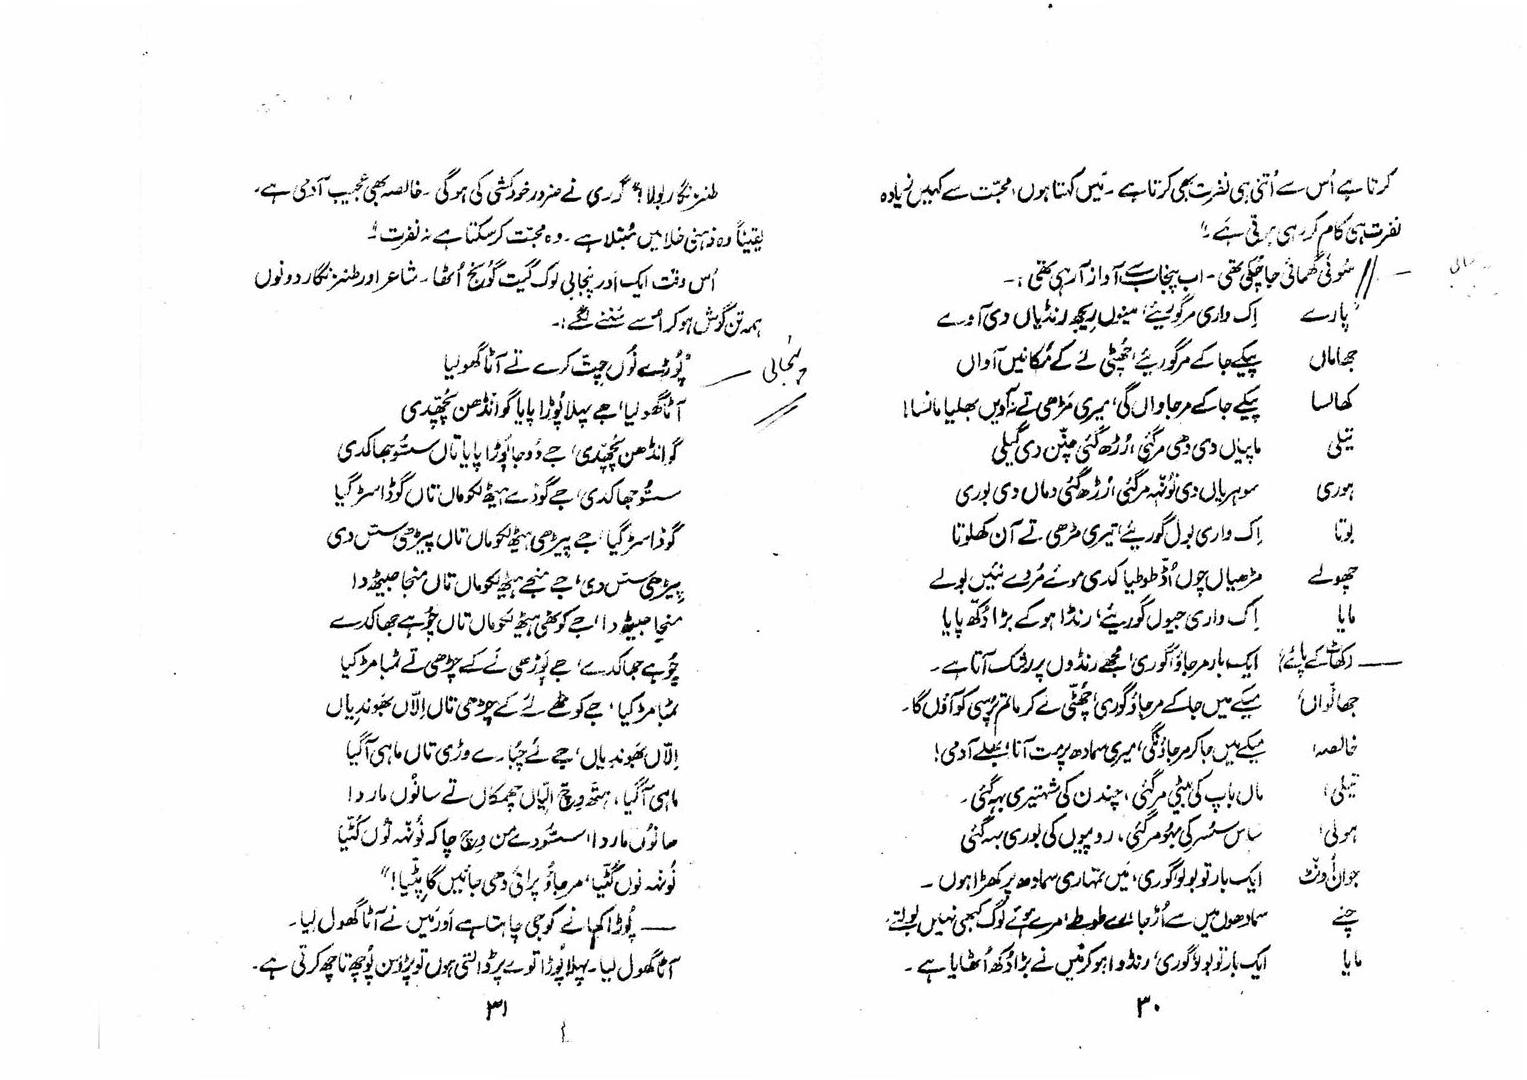 کرتا ہے اُس سے اُتنی ہی نفرت بھی کرتا ہے ۔ میں کہتا ہوں، محبت سے کہیں زیادہ
نفرت ہی کام کر رہی ہوتی ہے ۔"
سُوئی گھمائی جا چکی تھی ۔ اب پنجاب سے آواز آ رہی تھی :۔
پارے اِک واری مر گوریئے، مینوں ریجھ رنڈیاں دی آوے
جھاماں پیکے جا کے مر گوریئے، چھُٹی لے کے مُکانیں آواں
کھالسا پیکے جا کے مر جاواں گی، میری مڑھی تے نہ آویں بھلیا مانسا!
تیلی ماپیاں دی دھی مر گئی، رُڑھ گئی چنّن دی گیلی
ہوری سوہریاں دی نُونہہ مر گئی، رُڑھ گئی دماں دی بوری
بوتا اِک واری بول گوریئے، تیری مڑھی تے آن کھلوتا
چھولے مڑھیاں چوں اُڈ طوطیا کدی موئے مُردے نئیں بولے
مایا اِک واری جیول گوریئے، رنڈا ہو کے بڑا دُکھ پایا
رکھاٹ کے پائے، ایک بار مر جاؤ گوری، مجھے رنڈوں پر رشک آتا ہے ۔
جھانواں، میکے میں جا کے مر جاؤ گوری، چھُٹی لے کر ماتم پُرسی کو آؤں گا ۔
خالصہ، میکے میں جا کر مر جاؤنگی، میری سمادھ پر مت آنا، بھلے آدمی!
تیلی، ماں باپ کی بیٹی مر گئی، چندن کی شہتیری بہہ گئی ۔
ہولی، ساس سسُر کی بہُو مر گئی، روپوں کی بوری بہہ گئی
جوان اُونٹ ایک بار تو بولو گوری، میں تمہاری سمادھ پر کھڑا ہوں ۔
چنے سمادھوں میں سے اُڑ جا اے طوطے، مرے ہوئے لوگ کبھی نہیں بولتے،
مایا ایک بار تو بولو گوری، رنڈوا ہو کر میں نے بڑا دُکھ اُٹھایا ہے ۔
۳۰
طنز نگار بولا، "گوری نے ضرور خودکشی کی ہوگی ۔ خالصہ بھی عجیب آدمی ہے ۔
یقیناً وہ ذہنی خلا میں مُبتلا ہے ۔ وہ محبت کر سکتا ہے نہ نفرت!"
اُس وقت ایک اور پنجابی لوک گیت گونج اُٹھا ۔ شاعر اور طنز نگار دونوں
ہمہ تن گوش ہو کر اُسے سُننے لگے :۔
پنجابی
"پُوڑے نُوں چِت کرے نے آٹا گھولیا
آٹا گھولیا، جے پہلا پُوڑا پایا گوانڈھن پُچھدی
گوانڈھن پُچھدی، جے دُوجا پُوڑا پایا تاں سسُّو جھاکدی
سسُّو جھاکدی، جے گوڈے ہیٹھ لکوماں تاں گوڈا سڑ گیا
گوڈا سڑ گیا، جے پیڑھی ہیٹھ لکوماں تاں پیڑھی سسّ دی
پیڑھی سسّ دی، جے منجے ہیٹھ لکوماں تاں منجا جیٹھ دا
منجا جیٹھ دا، جے کوٹھی ہیٹھ لکوماں تاں چُوہے جھاکدے
چُوہے جھاکدے، جے پَوڑھی لے کے چڑھی تے ڈنڈا مڑ گیا
ڈنڈا مڑ گیا، جے کوٹھے لے کے چڑھی تاں اِلّاں بھوندیاں
اِلّاں بھوندیاں، جے لے چُبارے وڑی تاں ماہی آ گیا
ماہی آ گیا، ہتھ وچ الیاں چھمکاں تے سانُوں ماردا
سانُوں ماردا، سسُّو دے من وچ چا کہ نُونہہ نُوں کُٹیا
نُونہہ نُوں کُٹیا، مر جاؤ پرائی دھی جانیں گا پِٹیا!"
— پُوڑا کھانے کو جی چاہتا ہے اور میں نے آٹا گھول لیا ۔
آٹا گھول لیا ۔ پہلا پُوڑا توے پر ڈالتی ہوں تو پڑوسن پُوچھ تاچھ کرتی ہے ۔
۳۱